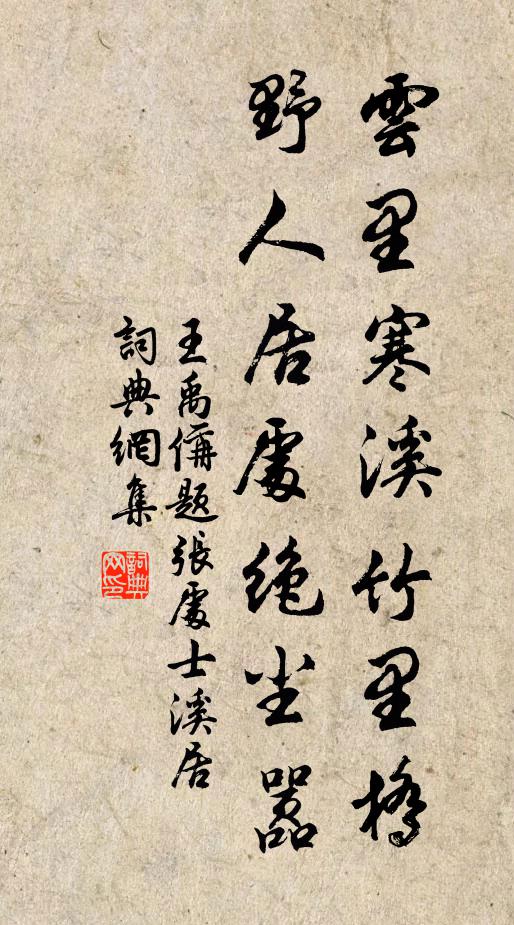 雲里寒溪竹里橋
野人居處絶尘囂
王禹偁題張處士溪居
詞典網集
詞典网印